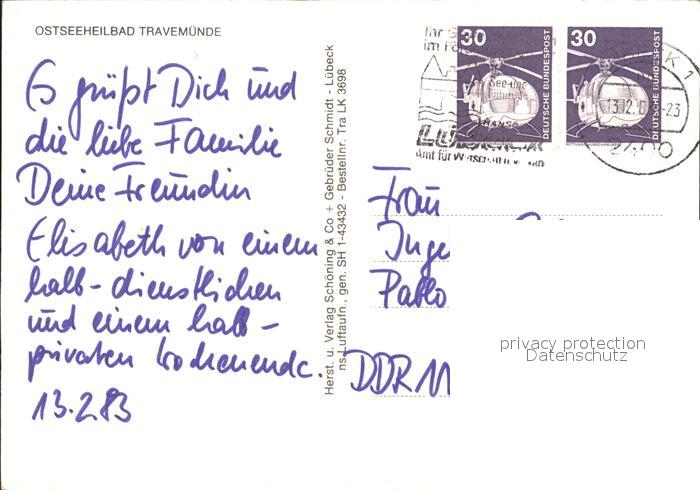 OSTSEEHEILBAD TRAVEMÜNDE
Es grüßt Dich und
die liebe Familie
Deine Freundin
Elisabeth von einem
halb-dienstlichen
und einem halb-
privaten Wochenende.
13.2.83
Herst. u. Verlag Schöning & Co + Gebrüder Schmidt - Lübeck
ns Luftaufn., gen. SH 1-43432 - Bestellnr. Tra LK 3698
Ihr
See-und
LÜBECK
30
DEUTSCHE BUNDESPOST
30
DEUTSCHE BUNDESPOST
2400
Frau
Inge
Pablo
DDR 11
privacy protection
Datenschutz